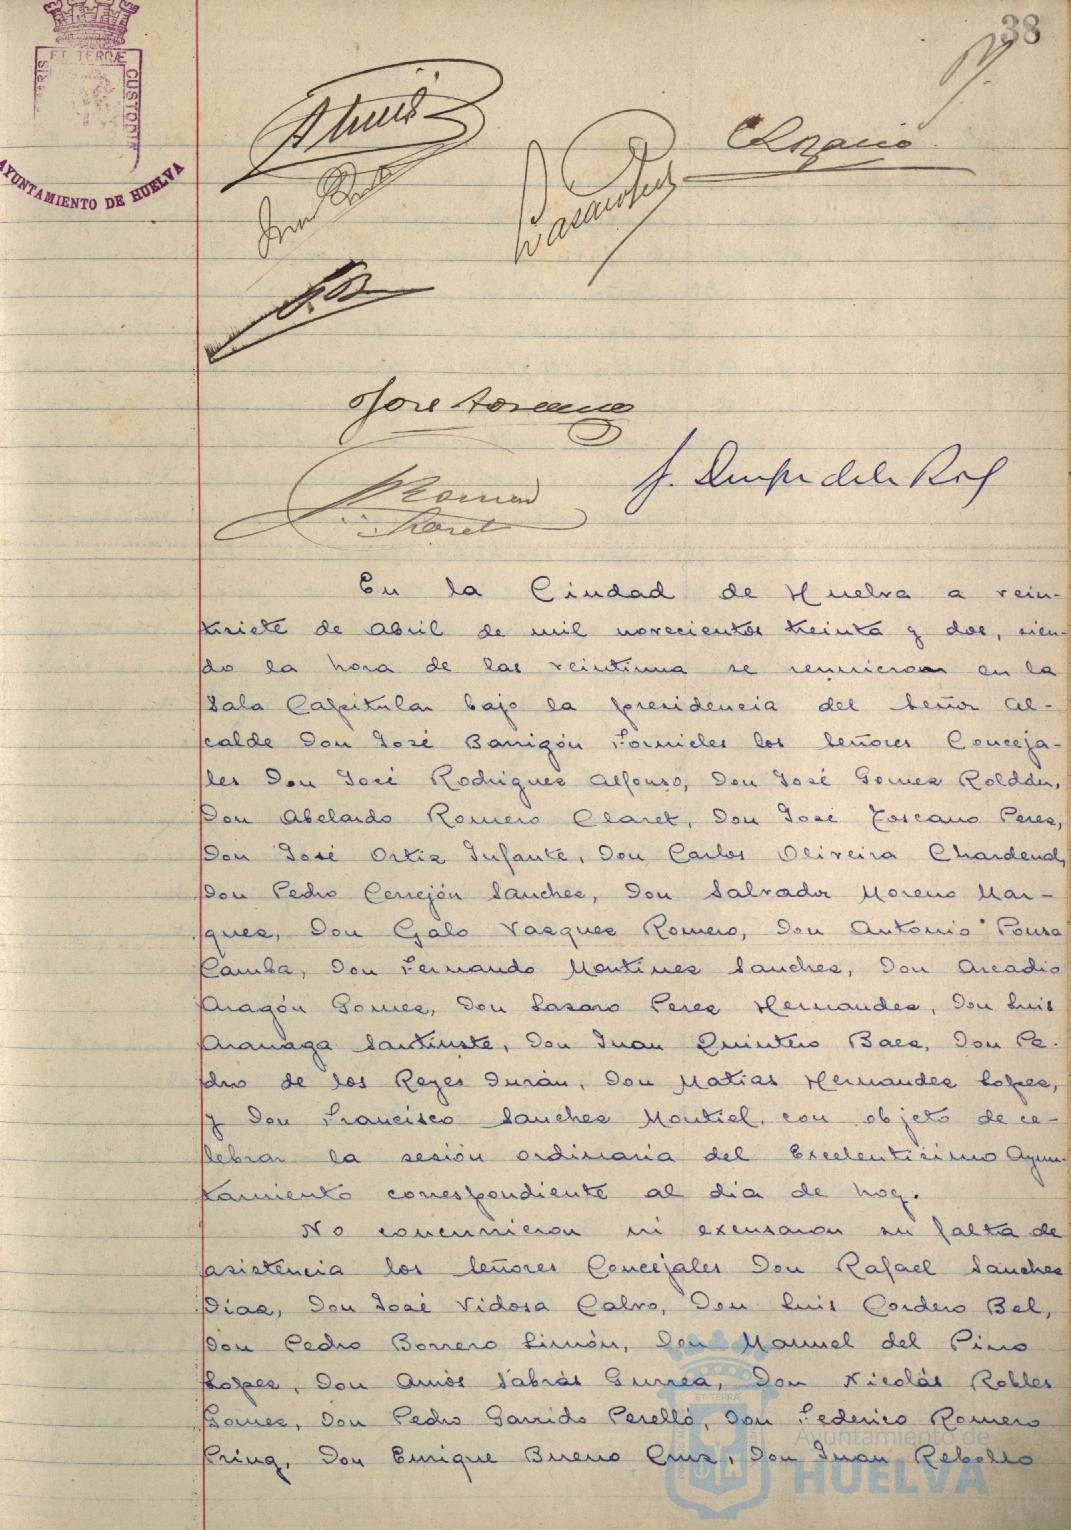 38
ET TERRÆ
CUSTODIA
AYUNTAMIENTO DE HUELVA
José Toscano
Romero
Claret
En la Ciudad de Huelva a vein-
tisiete de Abril de mil novecientos treinta y dos, sien-
do la hora de las veintiuna se reunieron en la
Sala Capitular bajo la presidencia del Señor Al-
calde Don José Barrigón Fornieles los Señores Conceja-
les Don José Rodriguez Alfonso, Don José Gomez Roldán,
Don Abelardo Romero Claret, Don José Toscano Perez,
Don José Ortiz Infante, Don Carlos Oliveira Chardenal,
Don Pedro Cerrejón Sanchez, Don Salvador Moreno Mar-
quez, Don Galo Vazquez Romero, Don Antonio Pousa
Camba, Don Fernando Mantinez Sanchez, Don Arcadio
Aragón Gomez, Don Lazaro Perez Hernandez, Don Luis
Aranaga Santiuste, Don Juan Quintero Baez, Don Pe-
dro de los Reyes Durán, Don Matias Hernandez Lopez,
y Don Francisco Sanchez Montiel, con objeto de ce-
lebrar la sesión ordinaria del Excelentisimo Ayun-
tamiento correspondiente al dia de hoy.
No concurrieron ni excusaron su falta de
asistencia los Señores Concejales Don Rafael Sanchez
Diaz, Don José Vidosa Calvo, Don Luis Cordero Bel,
Don Pedro Borrero Limón, Don Manuel del Pino
Lopez, Don Amós Sabrás Gurrea, Don Nicolás Robles
Gomez, Don Pedro Garrido Perelló, Don Federico Romero
Pring, Don Enrique Bueno Cruz, Don Juan Rebollo
Ayuntamiento de
HUELVA